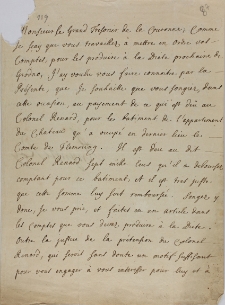 219
Monsieur le Grand Tresorier de la Couronne, Comme
Je sçay que vous travaillez, a mettre en ordre vos
Comptes, pour les produire a la Diete prochaine de
Grodno, J'ay voulu vous faire connoitre, par la
Presente, que Je souhaitte que vous songiez, dans
cette occasion, au payement de ce qui est dû au
Colonel Renard, pour le batiment de l'appartement
du Chateau qu'a occupé en dernier lieu le
Comte de Flemming. Il est due au dit
Colonel Renard Sept mille qu'il a deboursé
comptant pour ce batiment, et il est tres juste
que cette somme luy soit remboursée. Songez y
donc, Je vous prie, et faites en un article dans
les Comptes que vous devez produire a la Diete.
Outre la justice de la pretension du Colonel
Renard, qui seroit sans doute un motif suffisant
pour vous engager a vous interesser pour luy et a